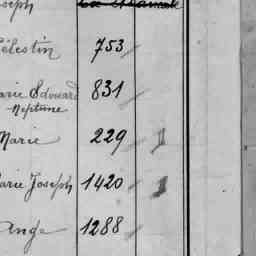 Joseph
Célestin 753
Marie Edouard 831
Neptune
Marie 229 11
Marie Joseph 1420 11
Ange 1288